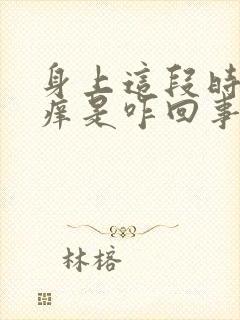 身上這段時
癢是咋回事
林榕